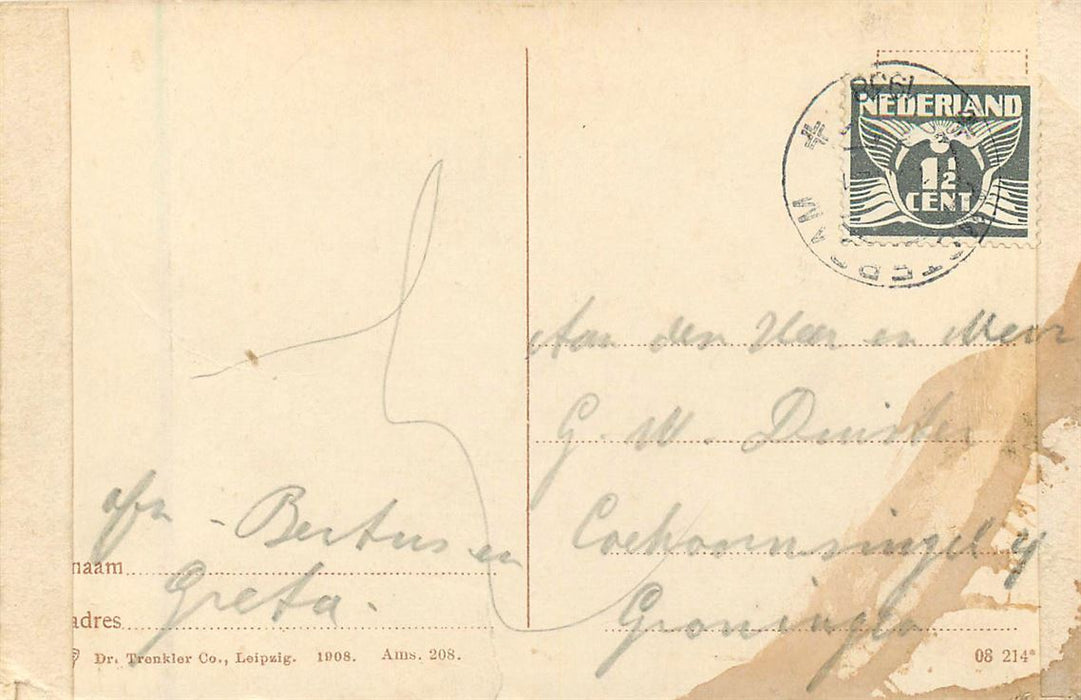 1938
AMSTERDAM
NEDERLAND
1½
CENT
Aan den Heer en Mevr
G. W. Duister
Coehoornsingel
Groningen
afz - Bertus en
Greta.
naam
adres
Dr. Trenkler Co., Leipzig. 1908. Ams. 208.
08 214*